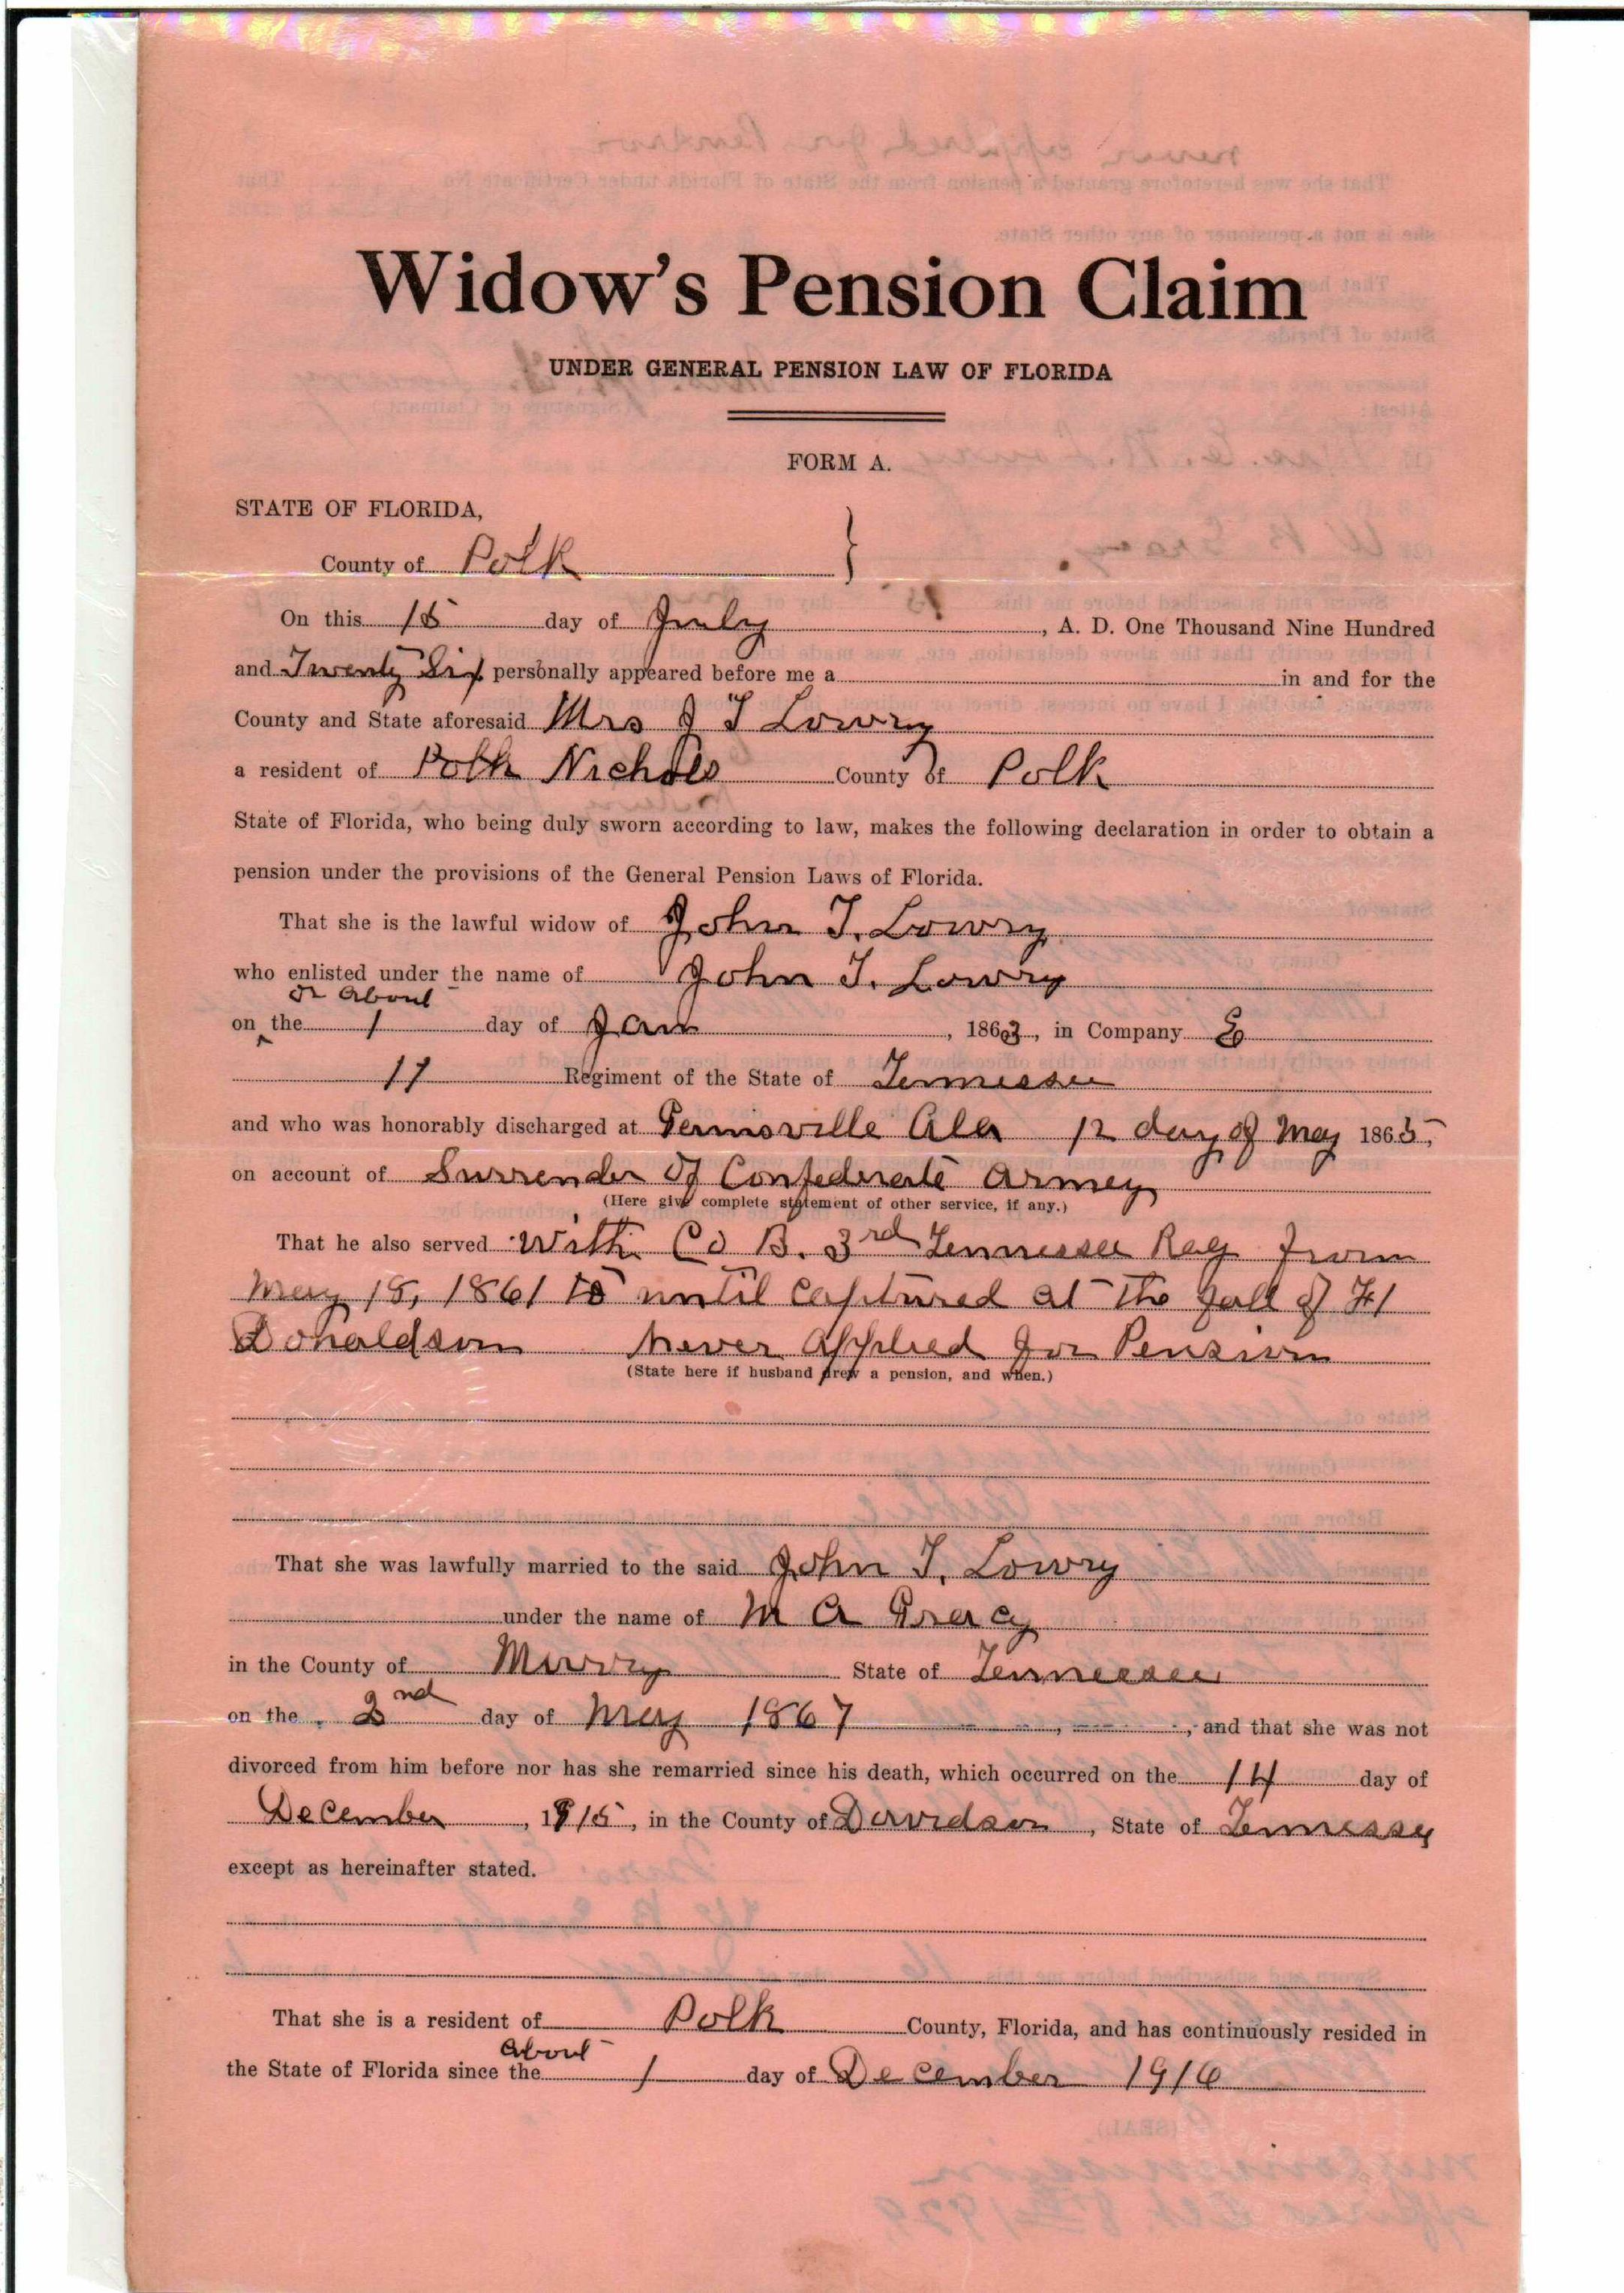 Widow's Pension Claim
UNDER GENERAL PENSION LAW OF FLORIDA
FORM A.
STATE OF FLORIDA,
County of Polk
On this 15 day of July, A. D. One Thousand Nine Hundred
and Twenty Six personally appeared before me a in and for the
County and State aforesaid Mrs J T Lowry
a resident of Polk Nichols County of Polk
State of Florida, who being duly sworn according to law, makes the following declaration in order to obtain a
pension under the provisions of the General Pension Laws of Florida.
That she is the lawful widow of John T. Lowry
who enlisted under the name of John T. Lowry
or About
on the 1 day of Jan, 1863, in Company E
11 Regiment of the State of Tennessee
and who was honorably discharged at Ala 12 day of May 1865,
on account of Surrender of Confederate Army
(Here give complete statement of other service, if any.)
That he also served With Co B. 3rd Tennessee Reg from
May 18, 1861 to until captured at the fall of Ft
Donaldson never applied for Pension
(State here if husband drew a pension, and when.)
That she was lawfully married to the said John T. Lowry
under the name of M A Gracy
in the County of Murry State of Tennessee
on the 2nd day of May 1867, and that she was not
divorced from him before nor has she remarried since his death, which occurred on the 14 day of
December, 1915, in the County of Davidson, State of Tennessy
except as hereinafter stated.
That she is a resident of Polk County, Florida, and has continuously resided in
About
the State of Florida since the 1 day of December 1916